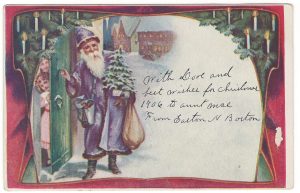 With Love and
best wishes for Christmas
1906 to aunt
From Easton N Boston